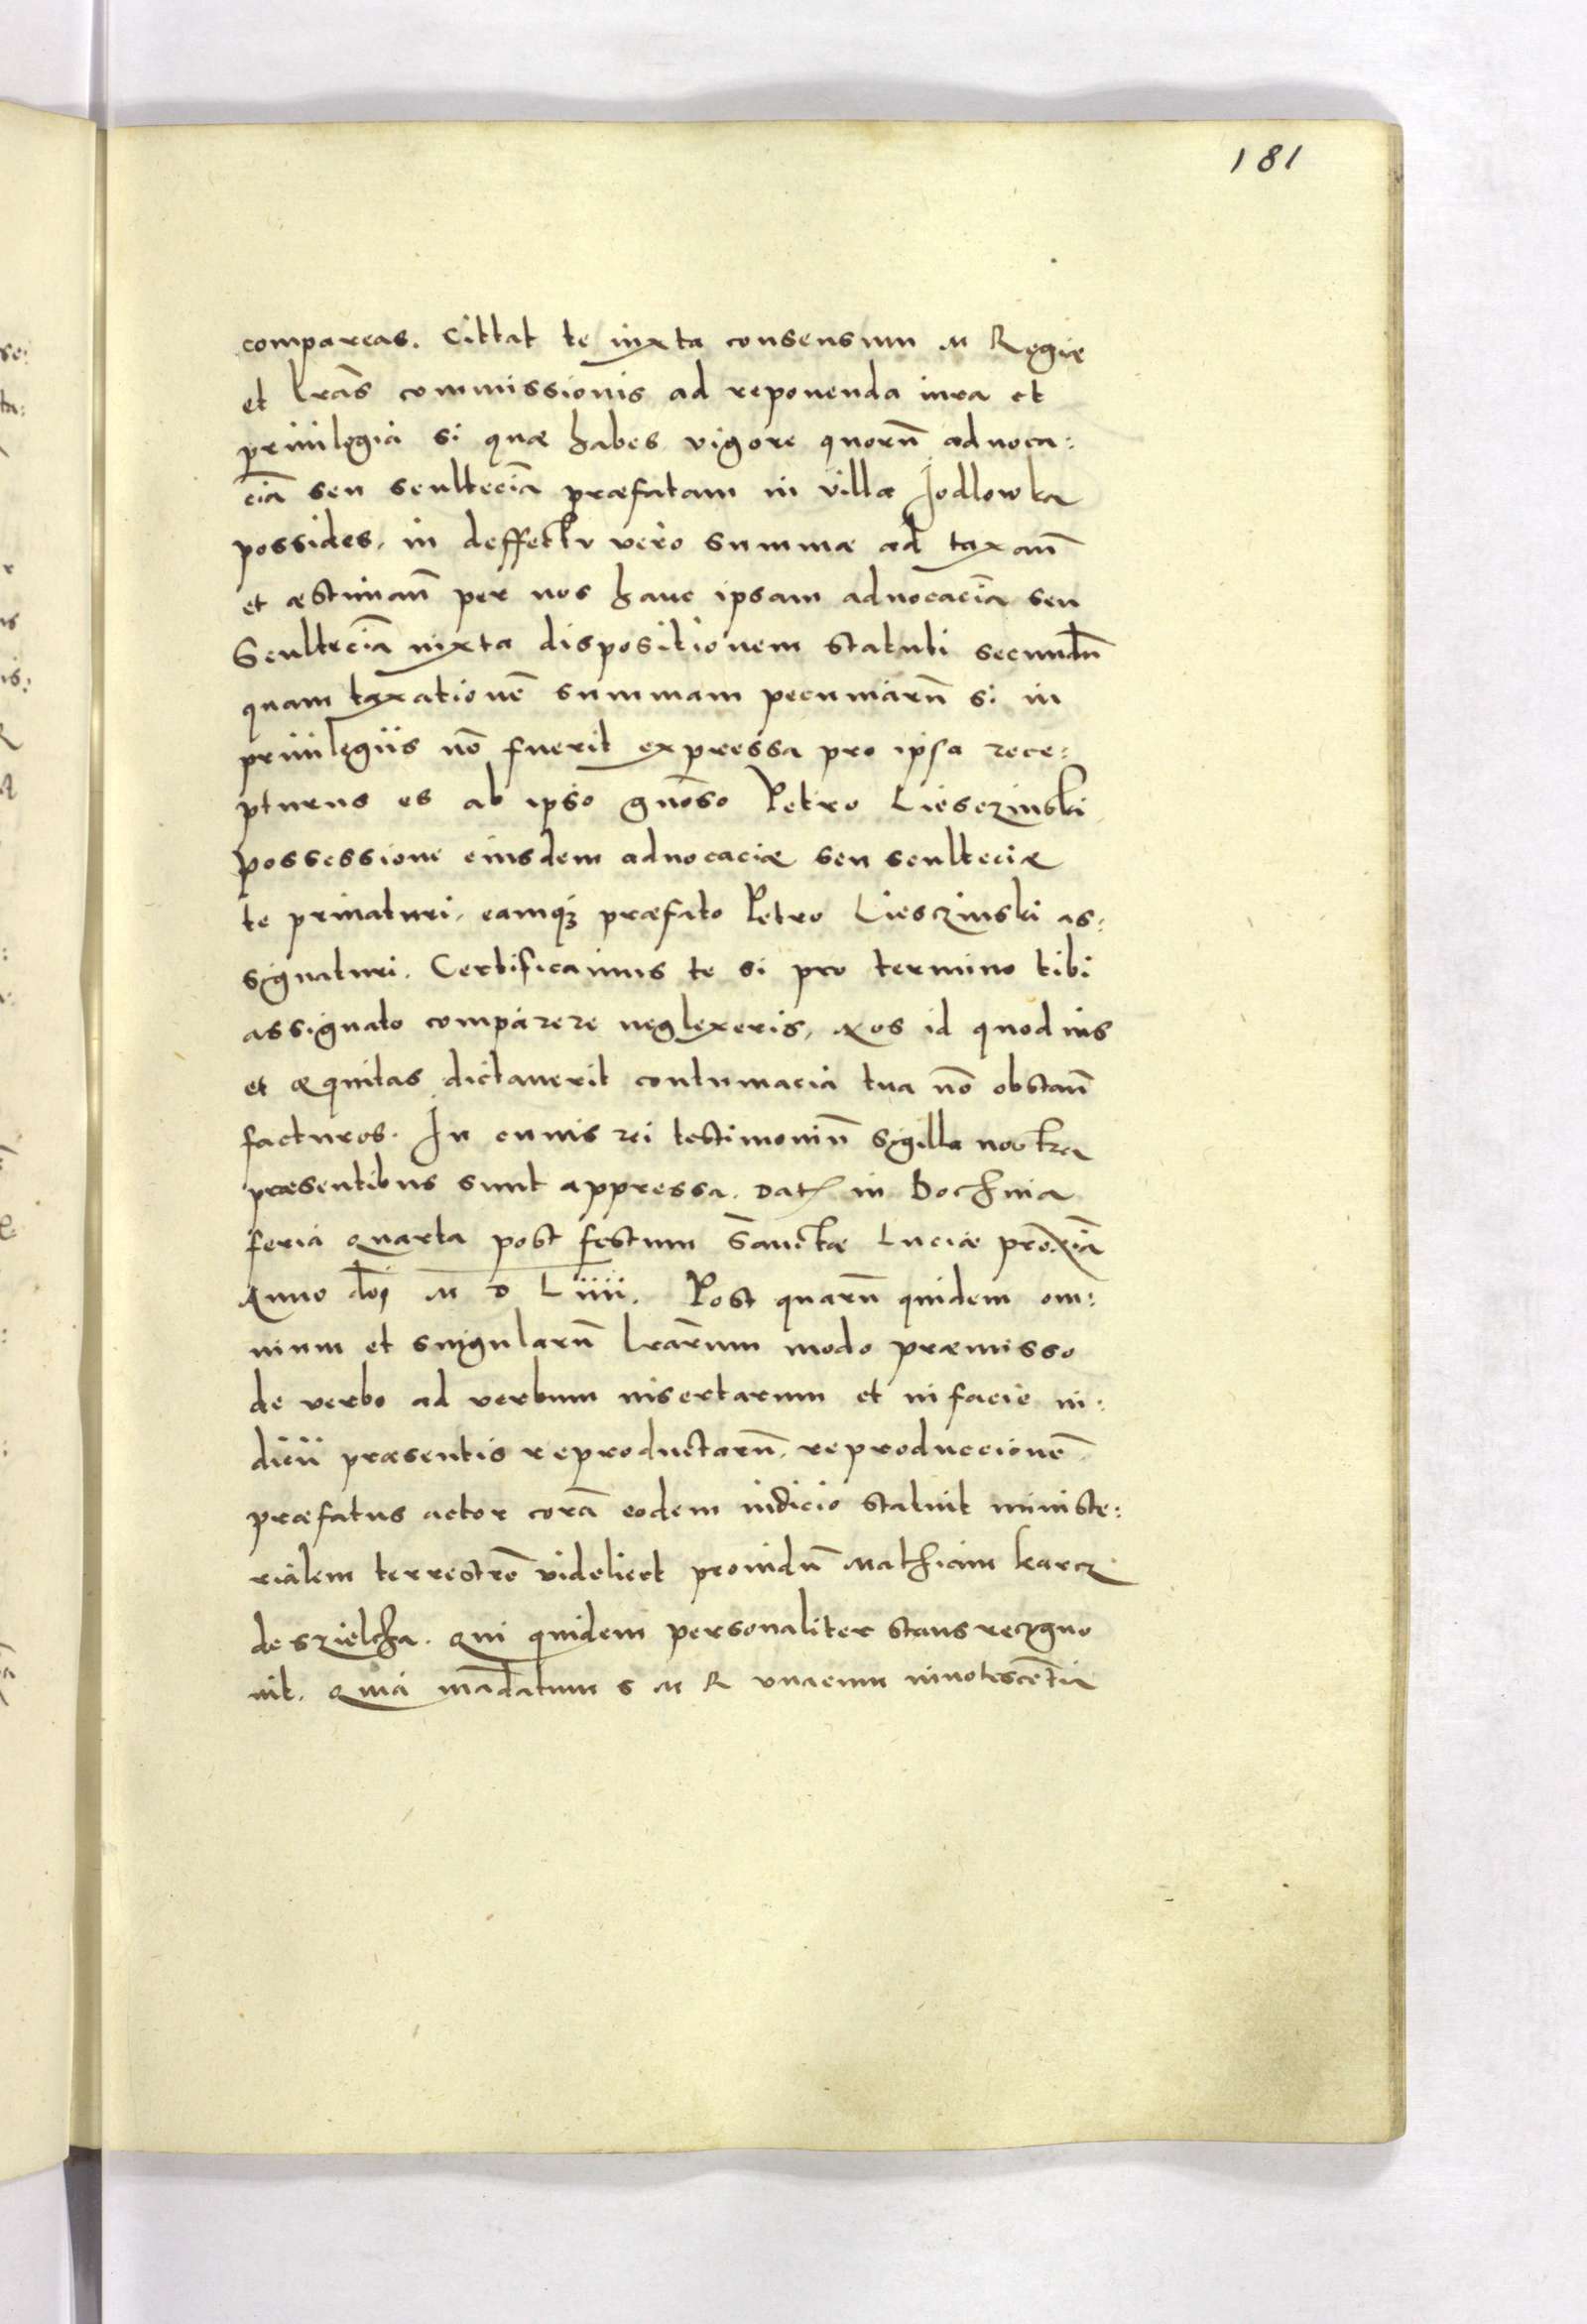 181
compareas. Cittat te iuxta consensum M Regiæ
et lrãs commissionis ad reponenda iura et
priuilegia si quæ habes vigore quorũ aduoca:
ciã seu scultteciã præfatam in villa Jodlowka
possides, in deffectu vero summæ ad taxanñ
et æstimanñ per nos hanc ipsam aduocaciã seu
Scultteciã iuxta dispositionem statuti secundũ
quam taxationẽ summam pecuniarũ si in
priuilegiis nõ fuerit expressa pro ipsa rece:
pturus es ab ipso gñoso Petro Liesczinski
possessione eiusdem aduocaciæ seu sculteciæ
te priuaturi, eamq₃ præfato Petro Liesczinski as:
signaturi. Certificamus te si pro termino tibi
assignato comparere neglexeris, nos id quod ius
et æquitas dictauerit contumacia tua nõ obstanñ
facturos. In cuius rei testimoniũ sigilla nostra
præsentibus sunt appressa. Datz in Bochnia
feria quarta post festum Sanctæ Luciæ proximã
Anno dñi M D Liiii. Post quarũ quidem om:
nium et singularũ lrarum modo præmisso
de verbo ad verbum insertarum et in facie iu:
dicii præsentis reproductarũ, reproduccionẽ
præfatus actor corã eodem iudicio statuit ministe:
rialem terrestrẽ videlicet prouidũ Mathiam karcz
de szielcza. Qui quidem personaliter stans recogno
uit. Quia mãdatum S M R vnacum innotescẽtia